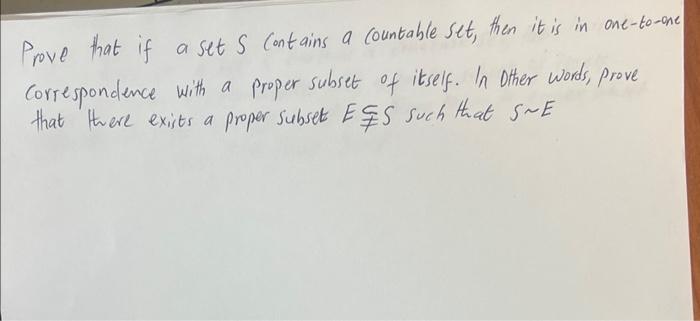 Prove that if a set S Contains a Countable set, then it is in one-to-one
Correspondence with a proper subset of itself. In Other words, prove
that there exists a proper subset E ⫋ S such that S~E